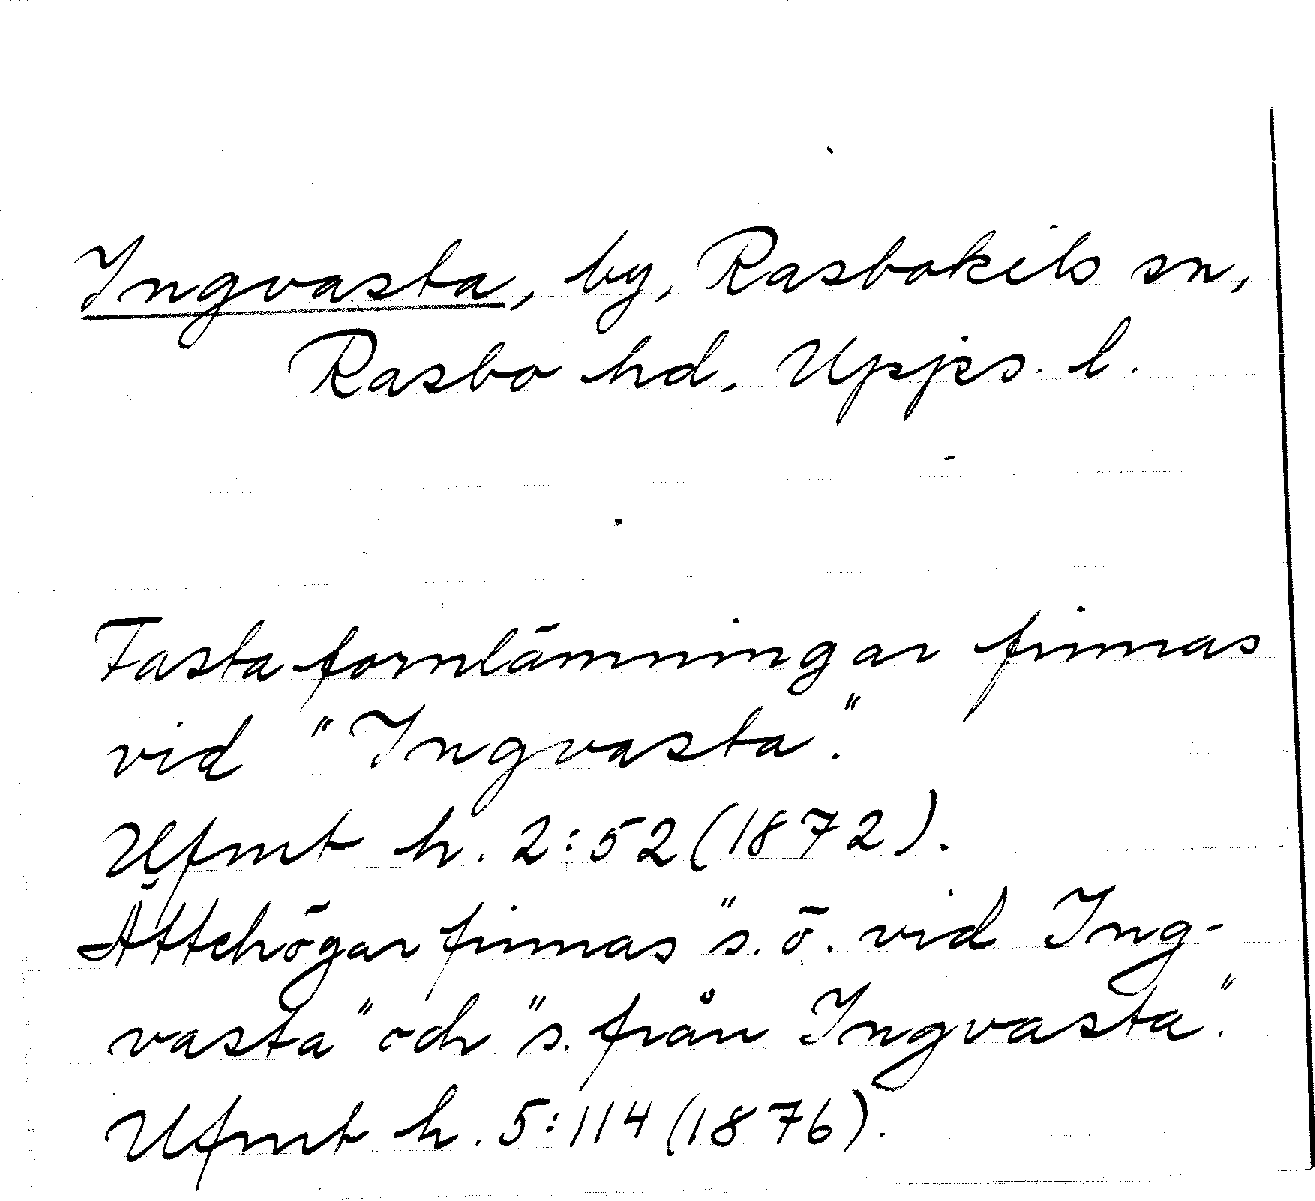 Ingvasta, by, Rasbokils sn,
Rasbo hd. Upps. l.
Fasta fornlämningar finnas
vid "Ingvasta".
Ufmt h. 2:52 (1872).
Ättehögar finnas "s.ö. vid Ing-
vasta" och "s. från Ingvasta".
Ufmt h. 5:114 (1876).